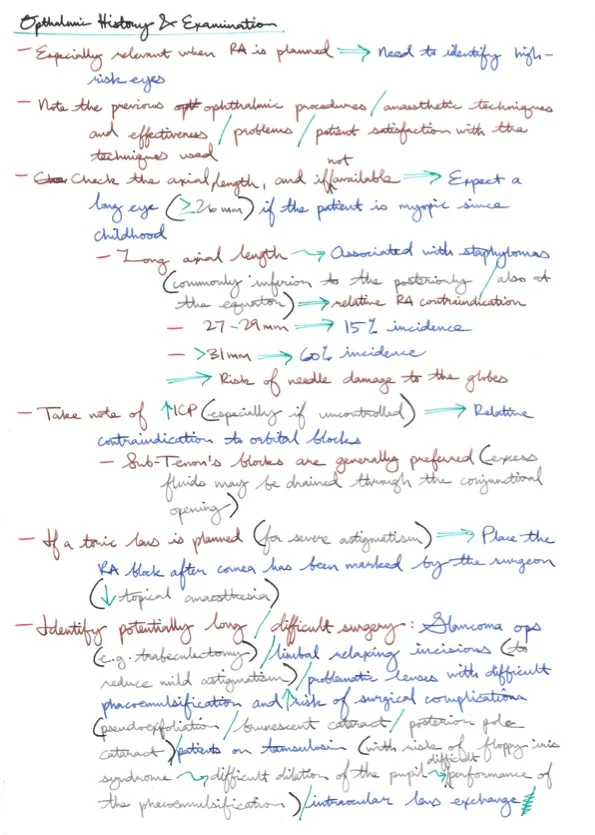 Opthalmic History & Examination
– Especially relevant when RA is planned ⇒ Need to identify high-
risk eyes
– Note the previous opt ophthalmic procedures / anaesthetic techniques
and effectiveness / problems / patient satisfaction with the
techniques used
– Check the axial length, and if not available ⇒ Expect a
long eye (≥26mm) if the patient is myopic since
childhood
– Long axial length ⇝ Associated with staphylomas
(commonly inferior to the posteriorly / also at
the equator) ⇒ relative RA contraindication
– 27-29mm ⇒ 15% incidence
– >31mm ⇒ 60% incidence
⇒ Risk of needle damage to the globes
– Take note of ↑ICP (especially if uncontrolled) ⇒ Relative
contraindication to orbital blocks
– Sub-Tenon's blocks are generally preferred (excess
fluids may be drained through the conjunctional
opening)
– If a toric lens is planned (for severe astigmatism) ⇒ Place the
RA block after cornea has been marked by the surgeon
(↓ topical anaesthesia)
– Identify potentially long / difficult surgery: Glaucoma ops
(e.g. trabeculectomy) / limbal relaxing incisions (to
reduce mild astigmatism) / problematic lenses with difficult
phacoemulsification and ↑risk of surgical complications
(pseudoexfoliation / brunescent cataract / posterior pole
cataract) / patients on tamsulosi (with risk of floppy iris
syndrome ⇝ difficult dilation of the pupil ⇝ difficult performance of
the phacoemulsification) / intraocular lens exchange